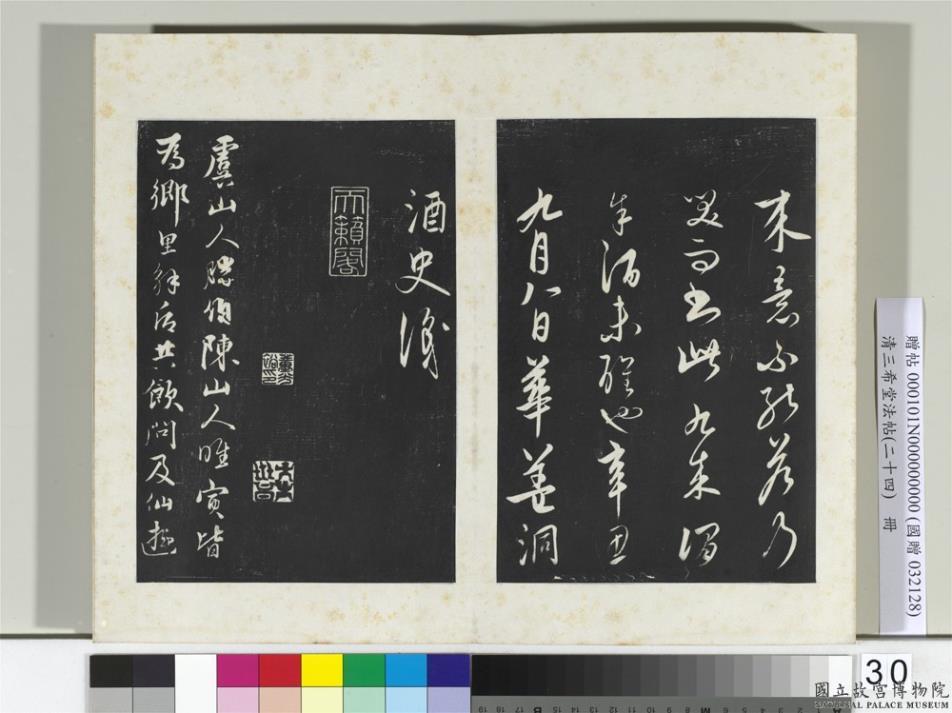 來意不能答乃
書此九成謂
酒未醒也辛丑
九月八日華蓋洞
酒史識
天籟閣
虞山人勝伯陳山人惟寅皆
為鄉里解后共飲問及仙遊
贈帖 000101N000000000 (國贈 032128)
清三希堂法帖(二十四) 冊
30
國立故宮博物院
NATIONAL PALACE MUSEUM